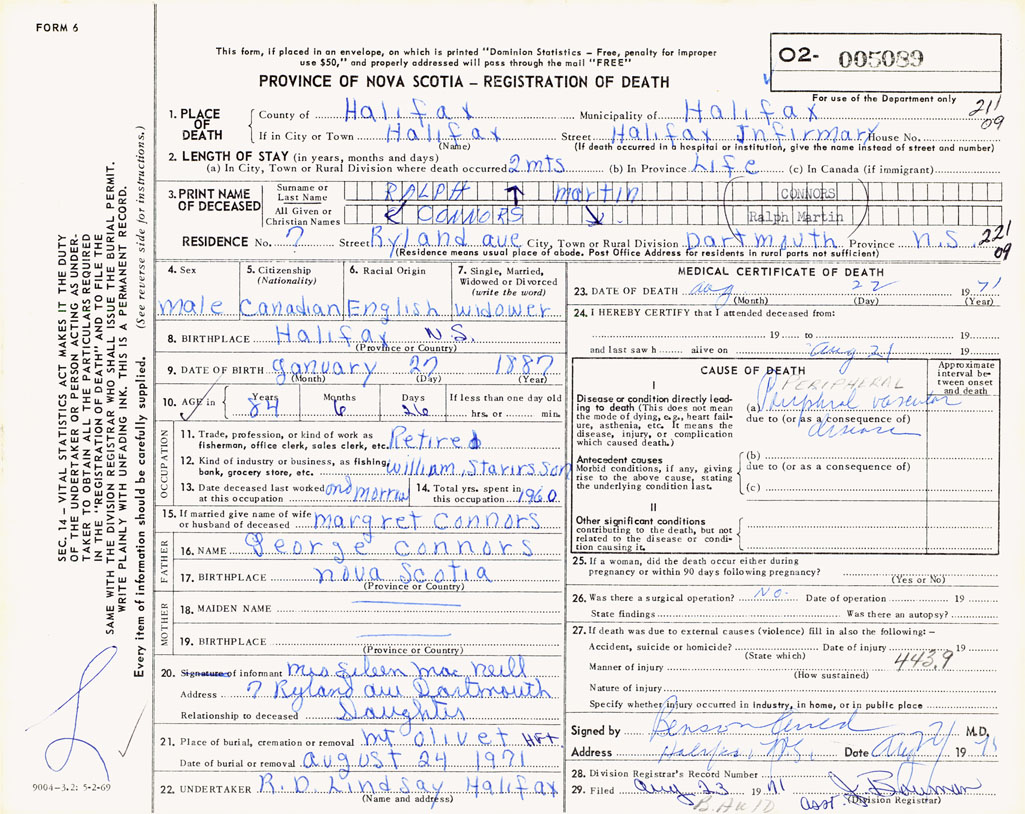 FORM 6
This form, if placed in an envelope, on which is printed "Dominion Statistics – Free, penalty for improper
use $50," and properly addressed will pass through the mail "FREE"
PROVINCE OF NOVA SCOTIA – REGISTRATION OF DEATH
O2- 005089
For use of the Department only
211
09
1. PLACE OF DEATH
County of Halifax Municipality of Halifax
If in City or Town Halifax Street Halifax Infirmary House No.
(Name) (If death occurred in a hospital or institution, give the name instead of street and number)
2. LENGTH OF STAY (in years, months and days)
(a) In City, Town or Rural Division where death occurred 2 mts (b) In Province Life (c) In Canada (if immigrant)
3. PRINT NAME OF DECEASED
Surname or Last Name RALPH martin CONNORS
All Given or Christian Names CONNORS Ralph Martin
RESIDENCE No. 7 Street Ryland ave City, Town or Rural Division Dartmouth Province N.S. 221
09
(Residence means usual place of abode. Post Office Address for residents in rural parts not sufficient)
4. Sex
male
5. Citizenship
(Nationality)
Canadian
6. Racial Origin
English
7. Single, Married,
Widowed or Divorced
(write the word)
widower
8. BIRTHPLACE Halifax N.S.
(Province or Country)
9. DATE OF BIRTH January 27 1887
(Month) (Day) (Year)
10. AGE in
Years Months Days If less than one day old
84 6 26 hrs. or min.
OCCUPATION
11. Trade, profession, or kind of work as
fisherman, office clerk, sales clerk, etc. Retired
12. Kind of industry or business, as fishing,
bank, grocery store, etc. William, Stairs son
13. Date deceased last worked
at this occupation and morris
14. Total yrs. spent in
this occupation 1960
15. If married give name of wife
or husband of deceased margret Connors
FATHER
16. NAME George Connors
17. BIRTHPLACE Nova Scotia
(Province or Country)
MOTHER
18. MAIDEN NAME
19. BIRTHPLACE
(Province or Country)
20. Signature of informant Mrs Eileen Mac Neill
Address 7 Ryland ave Dartmouth
Relationship to deceased Daughter
21. Place of burial, cremation or removal Mt Olivet Hfx
Date of burial or removal August 24 1971
22. UNDERTAKER R.D. Lindsay Halifax
(Name and address)
MEDICAL CERTIFICATE OF DEATH
23. DATE OF DEATH aug 22 1971
(Month) (Day) (Year)
24. I HEREBY CERTIFY that I attended deceased from:
19 to 19
and last saw h alive on Aug 21 19
CAUSE OF DEATH
Approximate
interval be-
tween onset
and death
I
Disease or condition directly lead-
ing to death (This does not mean
the mode of dying, e.g., heart fail-
ure, asthenia, etc. It means the
disease, injury, or complication
which caused death.)
PERIPHERAL
(a) Peripheral vascular
due to (or as a consequence of)
disease
Antecedent causes
Morbid conditions, if any, giving
rise to the above cause, stating
the underlying condition last.
(b)
due to (or as a consequence of)
(c)
II
Other significant conditions
contributing to the death, but not
related to the disease or condi-
tion causing it.
25. If a woman, did the death occur either during
pregnancy or within 90 days following pregnancy?
(Yes or No)
26. Was there a surgical operation? No. Date of operation 19
State findings Was there an autopsy?
27. If death was due to external causes (violence) fill in also the following: –
Accident, suicide or homicide? Date of injury 19
(State which)
443.9
Manner of injury
(How sustained)
Nature of injury
Specify whether injury occurred in industry, in home, or in public place
Signed by Benson M.D.
Address Halifax, N.S. Date Aug 24 1971
28. Division Registrar's Record Number
29. Filed Aug 23 1971 J. Bowman
Asst. (Division Registrar)
SEC. 14 – VITAL STATISTICS ACT MAKES IT THE DUTY
OF THE UNDERTAKER OR PERSON ACTING AS UNDER-
TAKER TO OBTAIN ALL THE PARTICULARS REQUIRED
IN THE "REGISTRATION OF DEATH" AND TO FILE THE
SAME WITH THE DIVISION REGISTRAR WHO SHALL ISSUE THE BURIAL PERMIT.
WRITE PLAINLY WITH UNFADING INK. THIS IS A PERMANENT RECORD.
Every item of information should be carefully supplied. (See reverse side for instructions.)
9004-3.2: 5-2-69